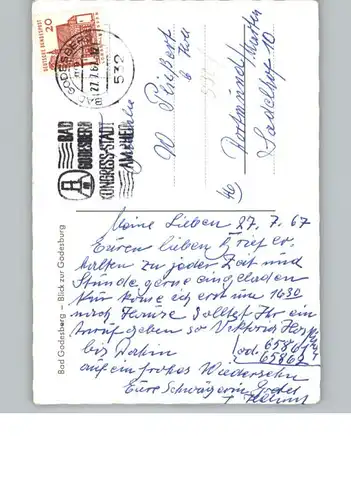 DEUTSCHE BUNDESPOST
20
BAD GODESBERG
27.7.67
532
BAD
GODESBERG
KONGRESS-STADT
AM RHEIN
46 Dortmund/Marten
Sadelhof 10
Bad Godesberg – Blick zur Godesburg
Meine Lieben 27.7.67
Euren lieben Brief er-
halten zu jeder Zeit und
Stunde gerne eingeladen
Nur komme ich erst um 1630
nach Hause solltet Ihr ein
Anruf geben so Viktoria
bis Dahin 65861
od. 65862
auf ein frohes Wiedersehn
Eure Schwägerin Gretel
+ Helmut